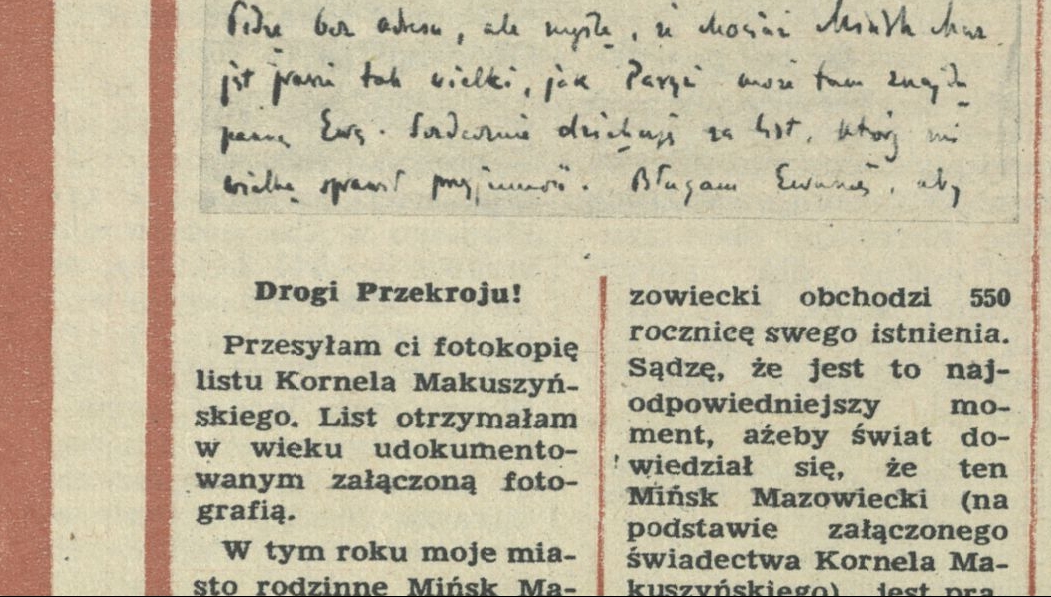 Piszę bez adresu, ale myślę, że chociaż Mińsk Maz.
jest prawie tak wielki, jak Paryż może tam znajdą
pannę Ewę. Serdecznie dziękuję za list, który mi
wielką sprawił przyjemność. Błagam Ewunię, aby
Drogi Przekroju!
Przesyłam ci fotokopię
listu Kornela Makuszyń-
skiego. List otrzymałam
w wieku udokumento-
wanym załączoną foto-
grafią.
W tym roku moje mia-
sto rodzinne Mińsk Ma-
zowiecki obchodzi 550
rocznicę swego istnienia.
Sądzę, że jest to naj-
odpowiedniejszy mo-
ment, ażeby świat do-
wiedział się, że ten
Mińsk Mazowiecki (na
podstawie załączonego
świadectwa Kornela Ma-
kuszyńskiego) jest pra